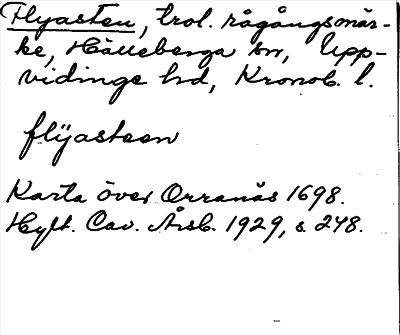 Flyasten, trol. rågångsmär-
ke, Hälleberga sn, Upp-
vidinge hd, Kronob. l.
flÿasteen
Karta över Orranäs 1698.
Hylt. Cav. Årsb. 1929, s. 248.